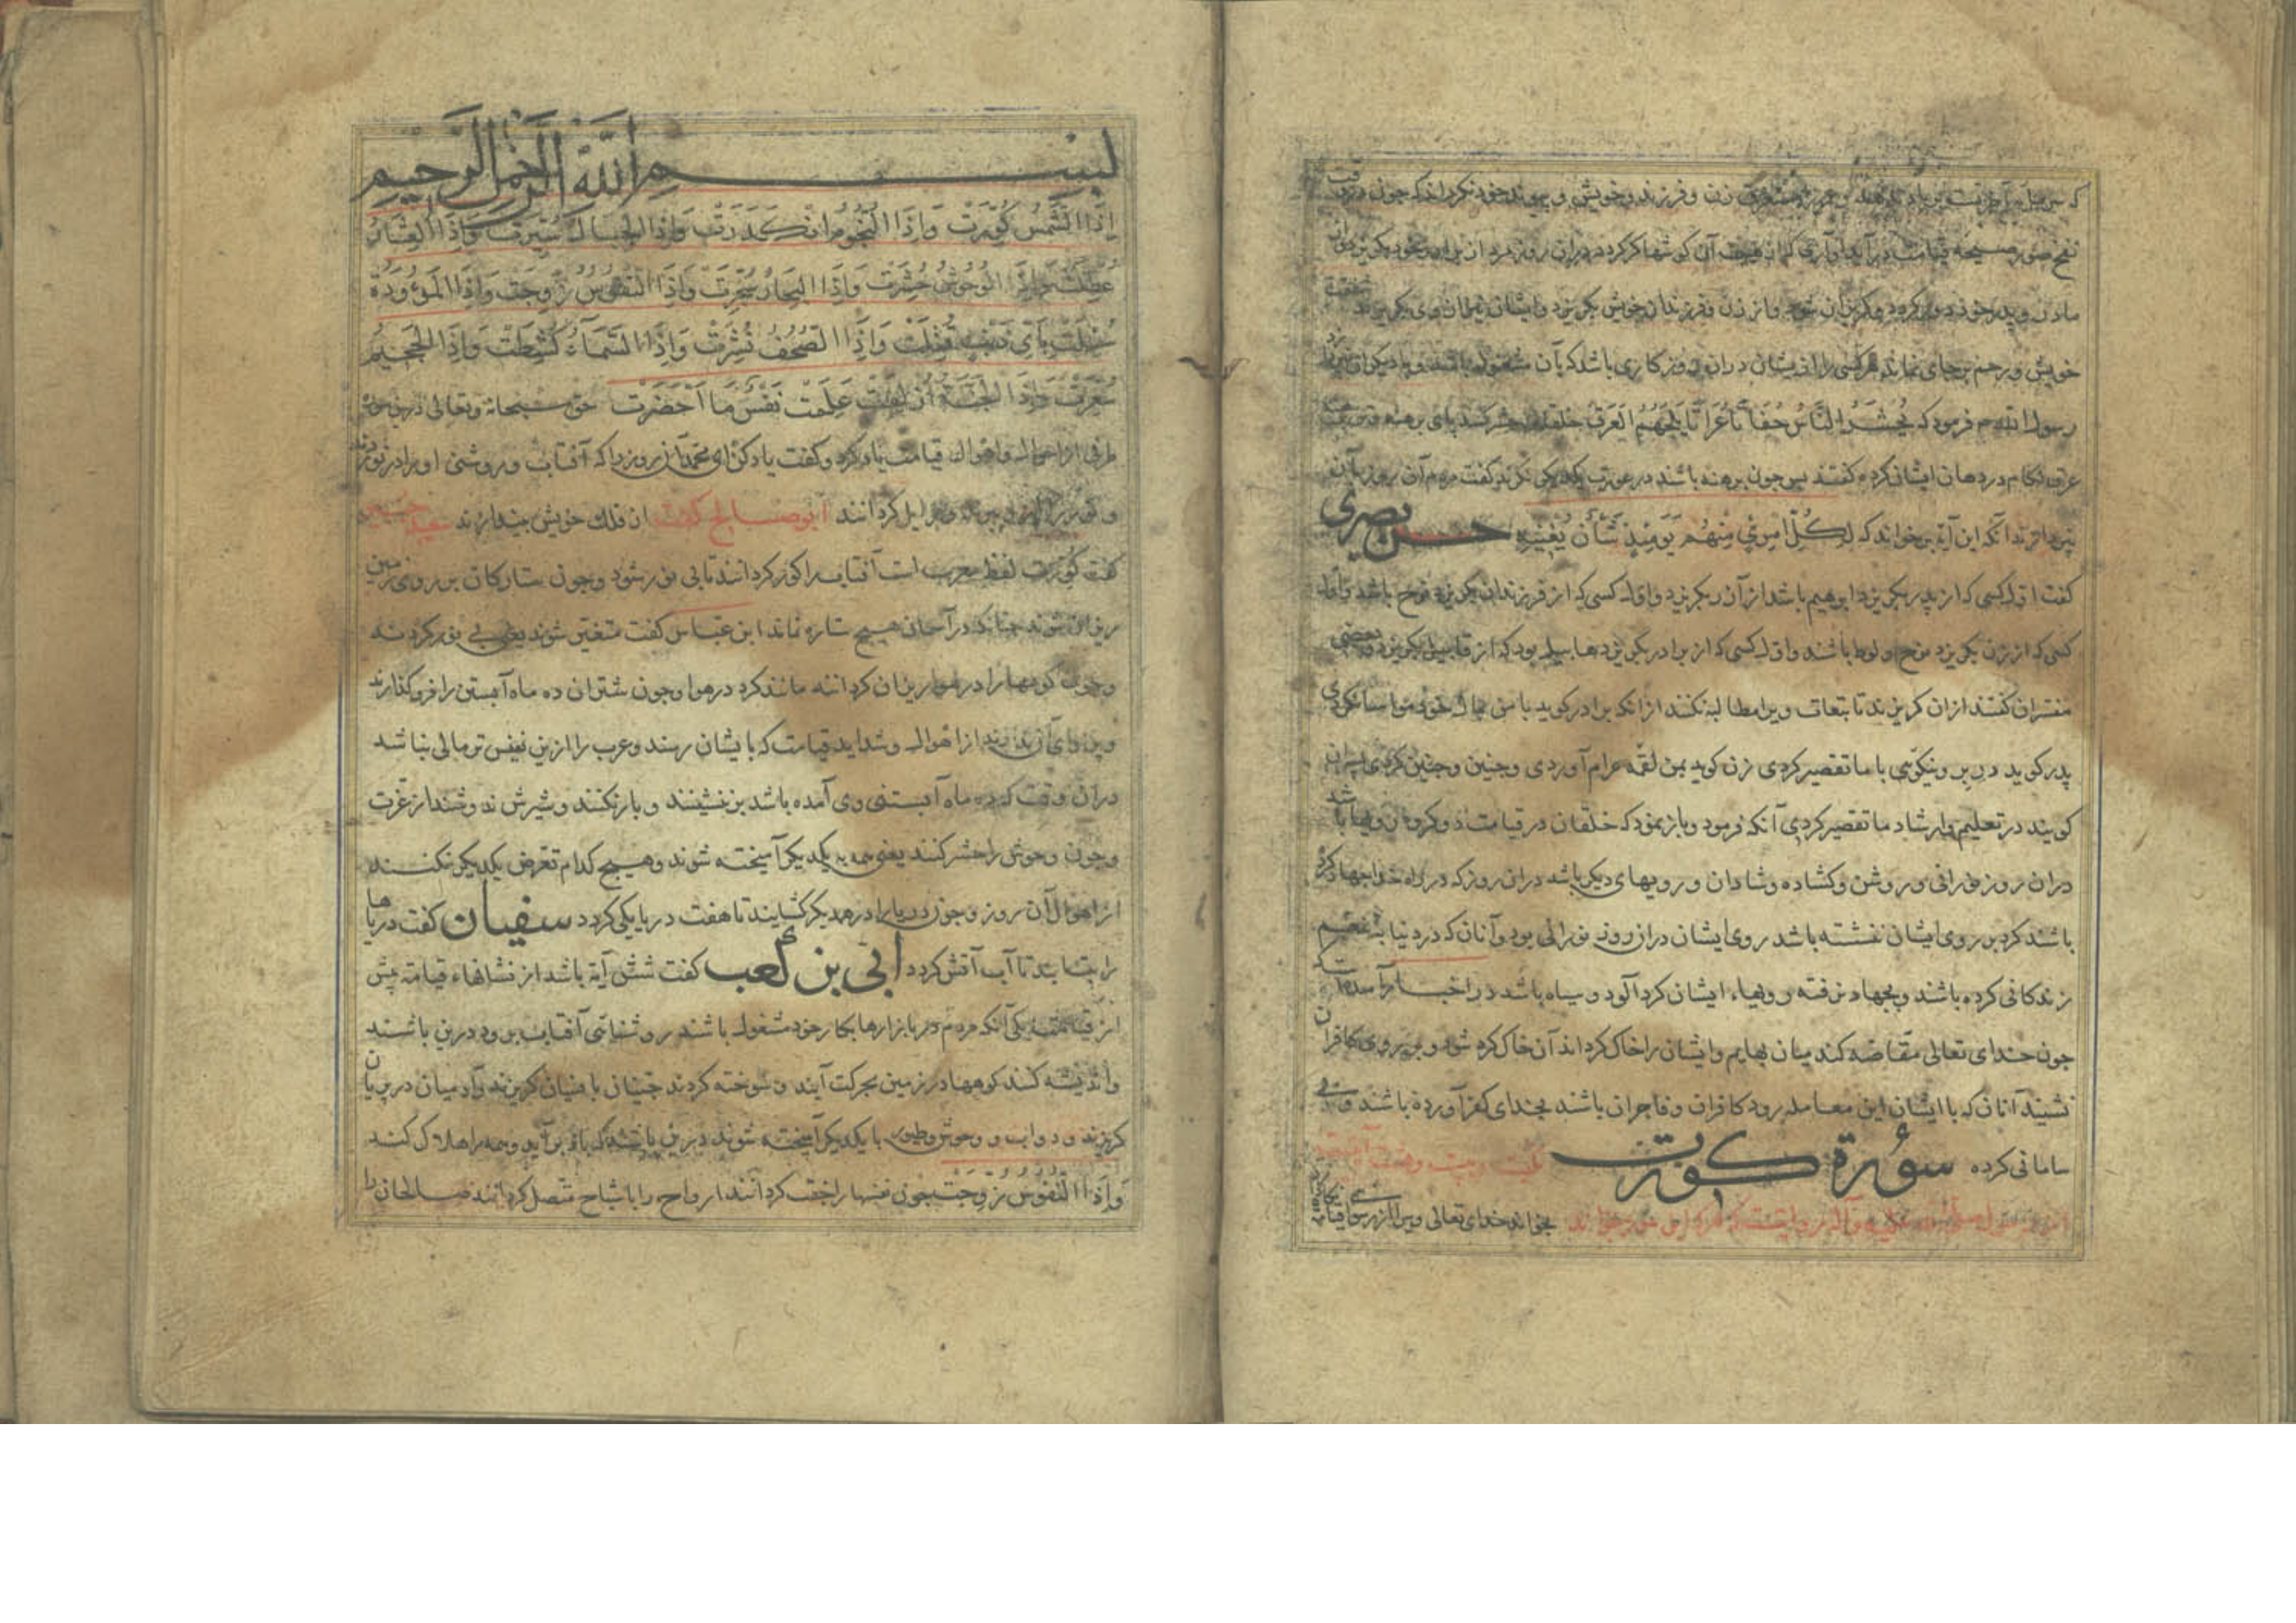 زن و فرزند و خویش و پیوند خود نکرد اند که چون در وقت
نفخ صور صیحه قیامت در آید آوازی که از هیبت آن گوشها کر کردد در آن روز مرد از برادر خود بکریزد و از
مادر و پدر خود دور کردد و کریزان شود و از زن و فرزندان خویش بکریزد و ایشان نیز از وی بکریزند
خویش و رحم بر جای نماند هر کسی را از ایشان در آن روز کاری باشد که بآن مشغول باشد و با دیکری نپردازد
رسول الله م فرمود که یحشر الناس حفاة عراة یلجمهم العرق خلقان حشر کنند پای برهنه و تن برهنه
عرق لکام در دهان ایشان کرده کفتند پس چون برهنه باشند در عورت یکدیکر نکرند کفت مردم آن روز بآن
نپردازند آنکه این آیة بر خواند که لِكُلِّ امْرِئٍ مِنْهُمْ يَوْمَئِذٍ شَأْنٌ يُغْنِيهِ حسن بصری
کفت اول کسی که از پدر بکریزد ابرهیم باشد از آزر بکریزد و اول کسی که از فرزندان بکریزد نوح باشد و اول
کسی که از زن بکریزد نوح و لوط باشند و اول کسی که از برادر بکریزد هابیل بود که از قابیل بکریزد و بعضی
مفسران کفتند از آن کریزند تا بتبعات ویرا مطالبه نکنند از آنکه برادر کوید با من بمال خود مواسا نکردی
پدر کوید در بر و نیکویی با ما تقصیر کردی زن کوید بمن لقمه حرام آوردی و چنین و چنین کردی پسران
کویند در تعلیم و ارشاد ما تقصیر کردی آنکه فرمود و باز نمود که خلقان در قیامت دو کروه‌ان رویها باشد
در آن روز نورانی و روشن و کشاده و شادان و رویهای دیکر باشد در آن روز که در راه خدا جهاد کرده
باشند کرد بر روی ایشان نشسته باشد روی ایشان در آن روز نورانی بود و آنان که در دنیا به تنعم
زندکانی کرده باشند و بجهاد نرفته رویهاء ایشان کردآلود و سیاه باشد در اخبار آمده است که
چون خدای تعالی مقاصه کند میان بهایم و ایشان را خاک کرداند آن خاک کرد شود و بر روی کافران
نشیند آنان که با ایشان این معامله رود کافران و فاجران باشند بخدای کفر آورده باشند و بی
سامانی کرده سورة كورت بیست و هفت آیتست
از رسول صلی الله علیه و آله روایتست که هر که این سوره بخواند بخواند خدای تعالی ویرا از رسوایی قیامت نکاه دارد
بسم الله الرحمن الرحيم
إِذَا الشَّمْسُ كُوِّرَتْ وَإِذَا النُّجُومُ انْكَدَرَتْ وَإِذَا الْجِبَالُ سُيِّرَتْ وَإِذَا الْعِشَارُ
عُطِّلَتْ وَإِذَا الْوُحُوشُ حُشِرَتْ وَإِذَا الْبِحَارُ سُجِّرَتْ وَإِذَا النُّفُوسُ زُوِّجَتْ وَإِذَا الْمَوْءُودَةُ
سُئِلَتْ بِأَيِّ ذَنْبٍ قُتِلَتْ وَإِذَا الصُّحُفُ نُشِرَتْ وَإِذَا السَّمَاءُ كُشِطَتْ وَإِذَا الْجَحِيمُ
سُعِّرَتْ وَإِذَا الْجَنَّةُ أُزْلِفَتْ عَلِمَتْ نَفْسٌ مَا أَحْضَرَتْ حق سبحانه و تعالی درین سوره
طرفی از احوال و اهوال قیامت یاد کرد و کفت یاد کن ای محمد آن روز را که آفتاب و روشنی او را در نوردند
و زایل کردانند ابو صالح کفت از فلک خویش بیندازند سعید جبیر
کفت کورت لفظ معرب است آفتاب را کور کردانند تا بی نور شود و چون ستارکان بر روی زمین
ریزان شوند چنانکه در آسمان هیچ ستاره نماند ابن عباس کفت متغیر شوند یعنی بی نور کردند
و چون کوهها را در هوا ریزان کردانند مانند کرد در هوا و چون شتران ده ماه آبستن را فرو کذارند
و پروای آن ندارند از اهوال و شداید قیامت که بایشان رسد و عرب را ازین نفیس تر مالی نباشد
در آن وقت که ده ماه آبستنی وی آمده باشد بر ننشینند و بار نکنند و شیرش ندوشند از عزت
و چون وحوش را حشر کنند یعنی همه به یکدیکر آمیخته شوند و هیچ کدام تعرض یکدیکر نکنند
از اهوال آن روز و چون دریا را در همدیکر کشایند تا هفت دریا یکی کردد سفیان کفت دریاها
را بتابند تا آب آتش کردد ابی بن کعب کفت شش آیة باشد از نشانهاء قیامة پیش
از قیامت یکی آنکه مردم در بازارها بکار خود مشغول باشند روشنائی آفتاب برود درین باشند
و اندیشه کنند کوهها در زمین بحرکت آیند و سوخته کردند جنیان با انسیان کریزند و آدمیان در پریان
کریزند و دواب و وحوش و طیور با یکدیکر آمیخته شوند درین باشند که باد بر آید و همه را هلاک کند
وَإِذَا النُّفُوسُ زُوِّجَتْ چون نفسها را جفت کردانند ارواح را باشباح متصل کردانند صالحان را